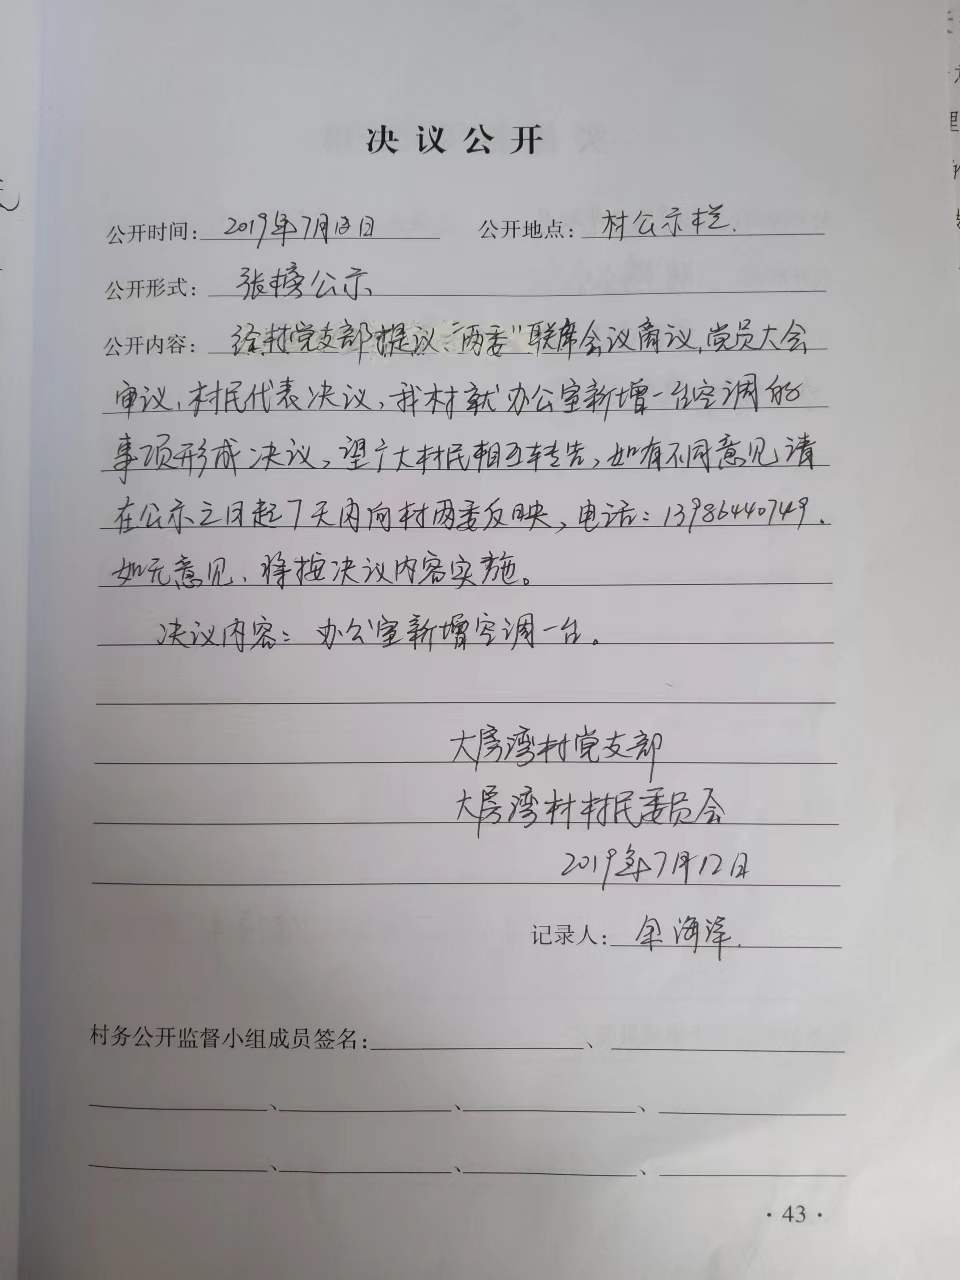 决议公开
公开时间：2019年7月12日 公开地点：村公示栏.
公开形式：张榜公示
公开内容：经村党支部提议、“两委”联席会议商议、党员大会
审议、村民代表决议，我村就办公室新增一台空调的
事项形成决议，望广大村民相互转告，如有不同意见请
在公示之日起7天内向村两委反映，电话：13986440749.
如无意见、将按决议内容实施。
决议内容：办公室新增空调一台。
大房湾村党支部
大房湾村村民委员会
2019年7月12日
记录人：余海洋.
村务公开监督小组成员签名：、
、、、
、、、
·43·